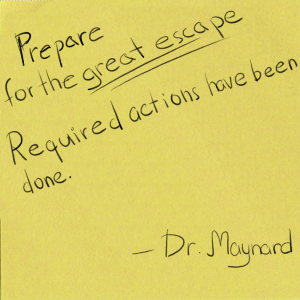 Prepare
for the great escape
Required actions have been
done.
– Dr. Maynard